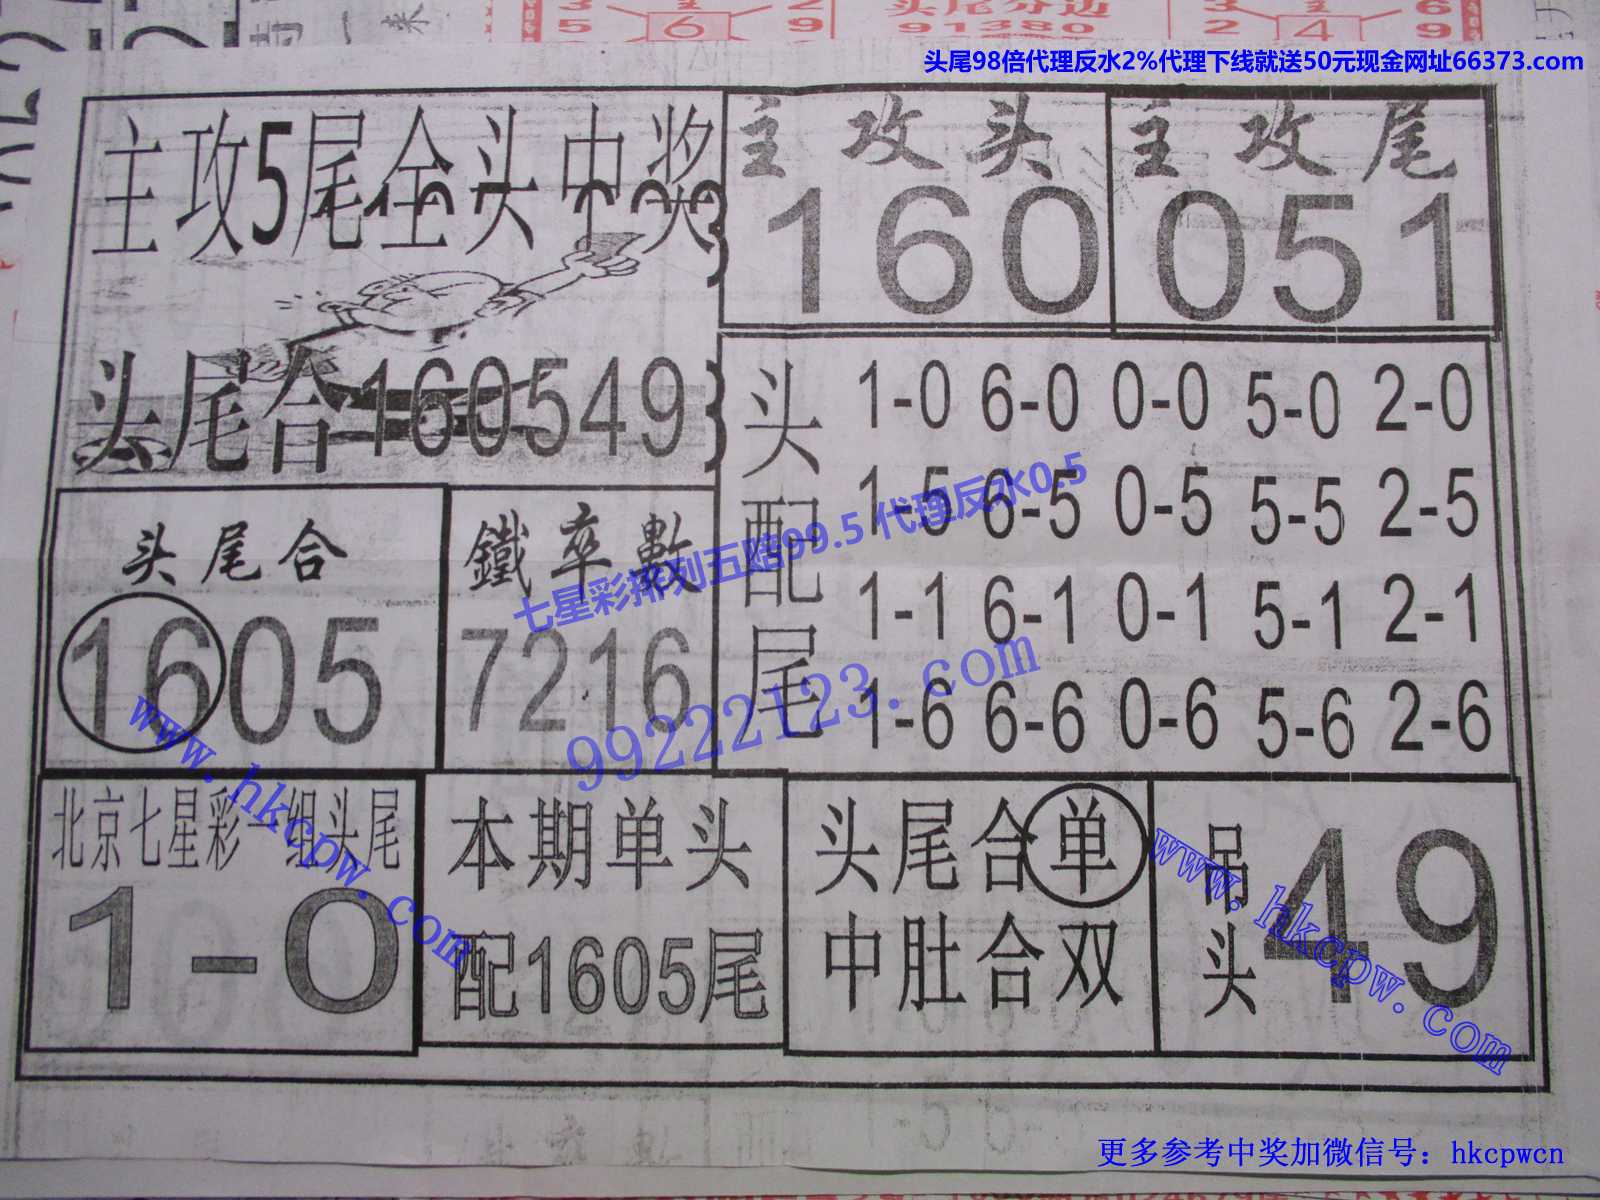 3 2 头尾分边 3 6
5 6 9 91380 2 4 9
头尾98倍代理反水2%代理下线就送50元现金网址66373.com
主攻5尾全头中奖
主攻头
160
主攻尾
051
头尾合160549
头配尾
1-0 6-0 0-0 5-0 2-0
1-5 6-5 0-5 5-5 2-5
1-1 6-1 0-1 5-1 2-1
1-6 6-6 0-6 5-6 2-6
头尾合
1605
鐵卒數
7216
七星彩排列五赔99.5 代理反水0.5
99222123.com
www.hkcpw.com
北京七星彩一组头尾
1-0
本期单头
配1605尾
头尾合单
中肚合双
吊头
49
www.hkcpw.com
更多参考中奖加微信号：hkcpwcn